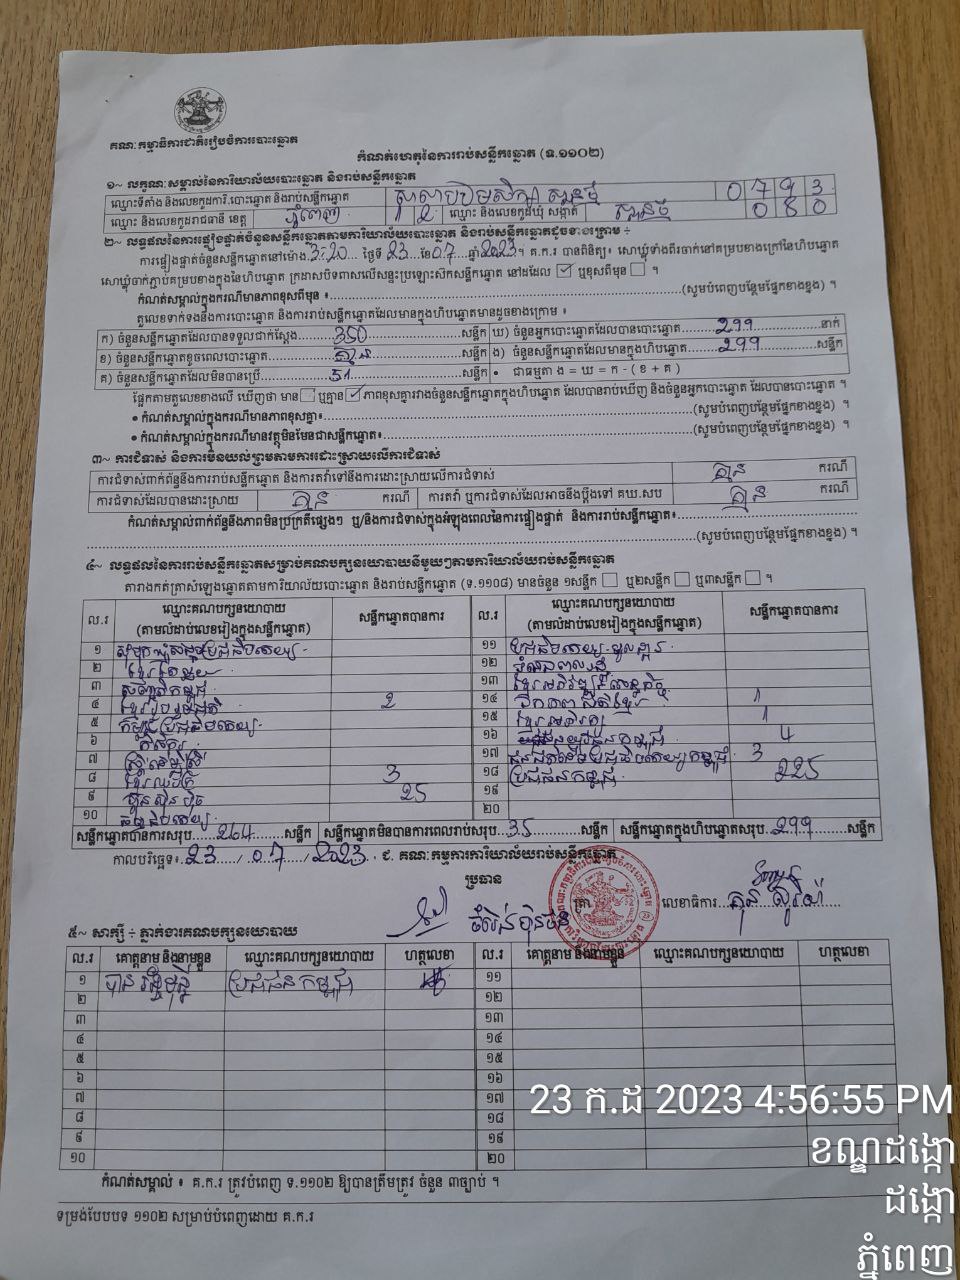 គណៈកម្មាធិការជាតិរៀបចំការបោះឆ្នោត
កំណត់ហេតុនៃការរាប់សន្លឹកឆ្នោត (ទ.១១០២)
១~ លក្ខណៈសម្គាល់នៃការិយាល័យបោះឆ្នោត និងរាប់សន្លឹកឆ្នោត
ឈ្មោះទីតាំង និងលេខកូដការិ.បោះឆ្នោត និងរាប់សន្លឹកឆ្នោត សាលាបឋមសិក្សា 0793
ឈ្មោះ និងលេខកូដរាជធានី ខេត្ត ភ្នំពេញ 12 ឈ្មោះ និងលេខកូដឃុំ សង្កាត់ 080
២~ លទ្ធផលនៃការផ្ទៀងផ្ទាត់ចំនួនសន្លឹកឆ្នោតតាមការិយាល័យបោះឆ្នោត និងរាប់សន្លឹកឆ្នោតដូចខាងក្រោម ÷
ការផ្ទៀងផ្ទាត់ចំនួនសន្លឹកឆ្នោតនៅម៉ោង 3:20 ថ្ងៃទី 23 ខែ 07 ឆ្នាំ 2023 ។ គ.ក.រ បានពិនិត្យ៖ សោឃ្លុំទាំងពីរចាក់នៅគម្របខាងក្រៅនៃហិបឆ្នោត
សោឃ្លុំចាក់ភ្ជាប់គម្របខាងក្នុងនៃហិបឆ្នោត ក្រដាសបិទពាសលើសន្ទះប្រឡោះស៊កសន្លឹកឆ្នោត នៅដដែល ☑ ឬខុសពីមុន ☐ ។
កំណត់សម្គាល់ក្នុងករណីមានភាពខុសពីមុន ៖ (សូមបំពេញបន្ថែមផ្នែកខាងខ្នង) ។
តួលេខទាក់ទងនឹងការបោះឆ្នោត និងការរាប់សន្លឹកឆ្នោតដែលមានក្នុងហិបឆ្នោតមានដូចខាងក្រោម ៖
ក) ចំនួនសន្លឹកឆ្នោតដែលបានទទួលជាក់ស្ដែង 350 សន្លឹក ឃ) ចំនួនអ្នកបោះឆ្នោតដែលបានបោះឆ្នោត 299 នាក់
ខ) ចំនួនសន្លឹកឆ្នោតខូចពេលបោះឆ្នោត គ្មាន សន្លឹក ង) ចំនួនសន្លឹកឆ្នោតដែលមានក្នុងហិបឆ្នោត 299 សន្លឹក
គ) ចំនួនសន្លឹកឆ្នោតដែលមិនបានប្រើ 51 សន្លឹក • ជាធម្មតា ង = ឃ = ក - ( ខ + គ )
ផ្អែកតាមតួលេខខាងលើ ឃើញថា មាន ☐ ឬគ្មាន ☑ ភាពខុសគ្នារវាងចំនួនសន្លឹកឆ្នោតក្នុងហិបឆ្នោត ដែលបានរាប់ឃើញ និងចំនួនអ្នកបោះឆ្នោត ដែលបានបោះឆ្នោត ។
• កំណត់សម្គាល់ក្នុងករណីមានភាពខុសគ្នា៖ (សូមបំពេញបន្ថែមផ្នែកខាងខ្នង) ។
• កំណត់សម្គាល់ក្នុងករណីមានវត្ថុមិនមែនជាសន្លឹកឆ្នោត៖ (សូមបំពេញបន្ថែមផ្នែកខាងខ្នង) ។
៣~ ការជំទាស់ និងការមិនយល់ព្រមតាមការដោះស្រាយលើការជំទាស់
ការជំទាស់ពាក់ព័ន្ធនឹងការរាប់សន្លឹកឆ្នោត និងការតវ៉ាទៅនឹងការដោះស្រាយលើការជំទាស់ គ្មាន ករណី
ការជំទាស់ដែលបានដោះស្រាយ គ្មាន ករណី ការតវ៉ា ឬការជំទាស់ដែលអាចនឹងប្ដឹងទៅ គឃ.សប គ្មាន ករណី
កំណត់សម្គាល់ពាក់ព័ន្ធនឹងភាពមិនប្រក្រតីផ្សេងៗ ឬ/និងការជំទាស់ក្នុងអំឡុងពេលនៃការផ្ទៀងផ្ទាត់ និងការរាប់សន្លឹកឆ្នោត៖
(សូមបំពេញបន្ថែមផ្នែកខាងខ្នង) ។
៤~ លទ្ធផលនៃការរាប់សន្លឹកឆ្នោតសម្រាប់គណបក្សនយោបាយនីមួយៗតាមការិយាល័យរាប់សន្លឹកឆ្នោត
តារាងកត់ត្រាសំឡេងឆ្នោតតាមការិយាល័យបោះឆ្នោត និងរាប់សន្លឹកឆ្នោត (ទ.១១០៨) មានចំនួន ១សន្លឹក ☐ ឬ២សន្លឹក ☐ ឬ៣សន្លឹក ☐ ។
ល.រ ឈ្មោះគណបក្សនយោបាយ (តាមលំដាប់លេខរៀងក្នុងសន្លឹកឆ្នោត) សន្លឹកឆ្នោតបានការ ល.រ ឈ្មោះគណបក្សនយោបាយ (តាមលំដាប់លេខរៀងក្នុងសន្លឹកឆ្នោត) សន្លឹកឆ្នោតបានការ
១ ១១ ប្រជាធិបតេយ្យមូលដ្ឋាន
២ ១២
៣ ១៣ ខ្មែរអភិវឌ្ឍន៍សេដ្ឋកិច្ច
៤ ខ្មែររួបរួមជាតិ 2 ១៤ ឯកភាពជាតិខ្មែរ 1
៥ កម្ពុជា ១៥ ខ្មែរអភិរក្ស 1
៦ កសិករ ១៦ យុវជនកម្ពុជា 4
៧ ស្ត្រីដើម្បីស្ត្រី ១៧ 3
៨ ខ្មែរឈប់ក្រ 3 ១៨ ប្រជាជនកម្ពុជា 225
៩ ហ៊្វុនស៊ិនប៉ិច 25 ១៩
១០ ២០
សន្លឹកឆ្នោតបានការសរុប 264 សន្លឹក សន្លឹកឆ្នោតមិនបានការពេលរាប់សរុប 35 សន្លឹក សន្លឹកឆ្នោតក្នុងហិបឆ្នោតសរុប 299 សន្លឹក
កាលបរិច្ឆេទ៖ 23 / 07 / 2023 . ជ. គណៈកម្មការការិយាល័យរាប់សន្លឹកឆ្នោត
ប្រធាន
ត្រា លេខាធិការ
៥~ សាក្សី ÷ ភ្នាក់ងារគណបក្សនយោបាយ
ល.រ គោត្តនាម និងនាមខ្លួន ឈ្មោះគណបក្សនយោបាយ ហត្ថលេខា ល.រ គោត្តនាម និងនាមខ្លួន ឈ្មោះគណបក្សនយោបាយ ហត្ថលេខា
១ ប្រជាជនកម្ពុជា ១១
២ ១២
៣ ១៣
៤ ១៤
៥ ១៥
៦ ១៦
៧ ១៧
៨ ១៨
៩ ១៩
១០ ២០
កំណត់សម្គាល់ ៖ គ.ក.រ ត្រូវបំពេញ ទ.១១០២ ឱ្យបានត្រឹមត្រូវ ចំនួន ៣ច្បាប់ ។
ទម្រង់បែបបទ ១១០២ សម្រាប់បំពេញដោយ គ.ក.រ
23 ក.ដ 2023 4:56:55 PM
ខណ្ឌដង្កោ
ដង្កោ
ភ្នំពេញ